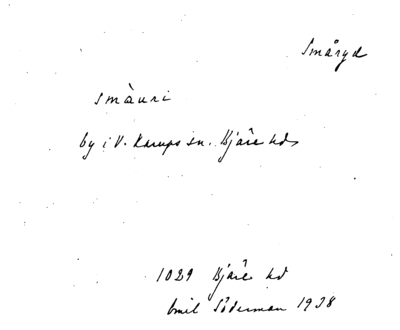 Småryd
småuri
by i V. Karups sn. Bjäre hd
1029 Bjäre hd
Emil Söderman 1938